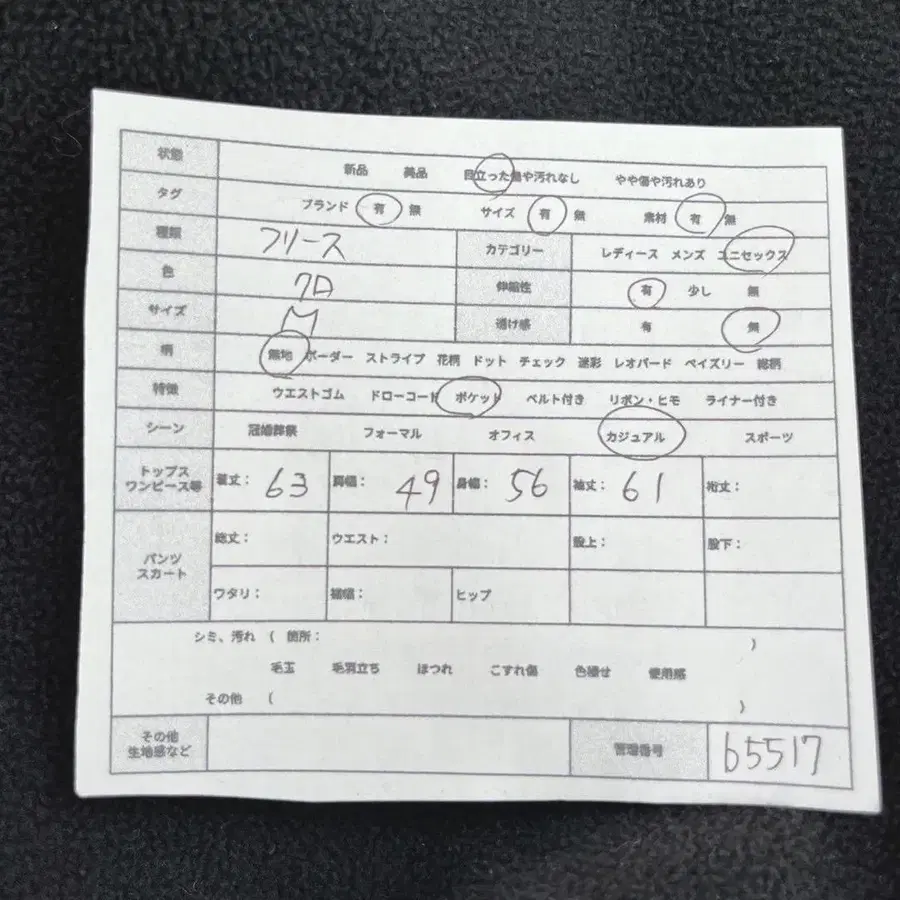 状態 新品 美品 目立った傷や汚れなし やや傷や汚れあり
タグ ブランド 有 無 サイズ 有 無 素材 有 無
種類 フリース カテゴリー レディース メンズ ユニセックス
色 クロ 伸縮性 有 少し 無
サイズ M 透け感 有 無
柄 無地 ボーダー ストライプ 花柄 ドット チェック 迷彩 レオパード ペイズリー 総柄
特徴 ウエストゴム ドローコード ポケット ベルト付き リボン・ヒモ ライナー付き
シーン 冠婚葬祭 フォーマル オフィス カジュアル スポーツ
トップス
ワンピース等 着丈: 63 肩幅: 49 身幅: 56 袖丈: 61 裄丈:
パンツ
スカート 総丈: ウエスト: 股上: 股下:
ワタリ: 裾幅: ヒップ
シミ、汚れ ( 箇所: )
毛玉 毛羽立ち ほつれ こすれ傷 色褪せ 使用感
その他 ( )
その他
生地感など 管理番号 65517